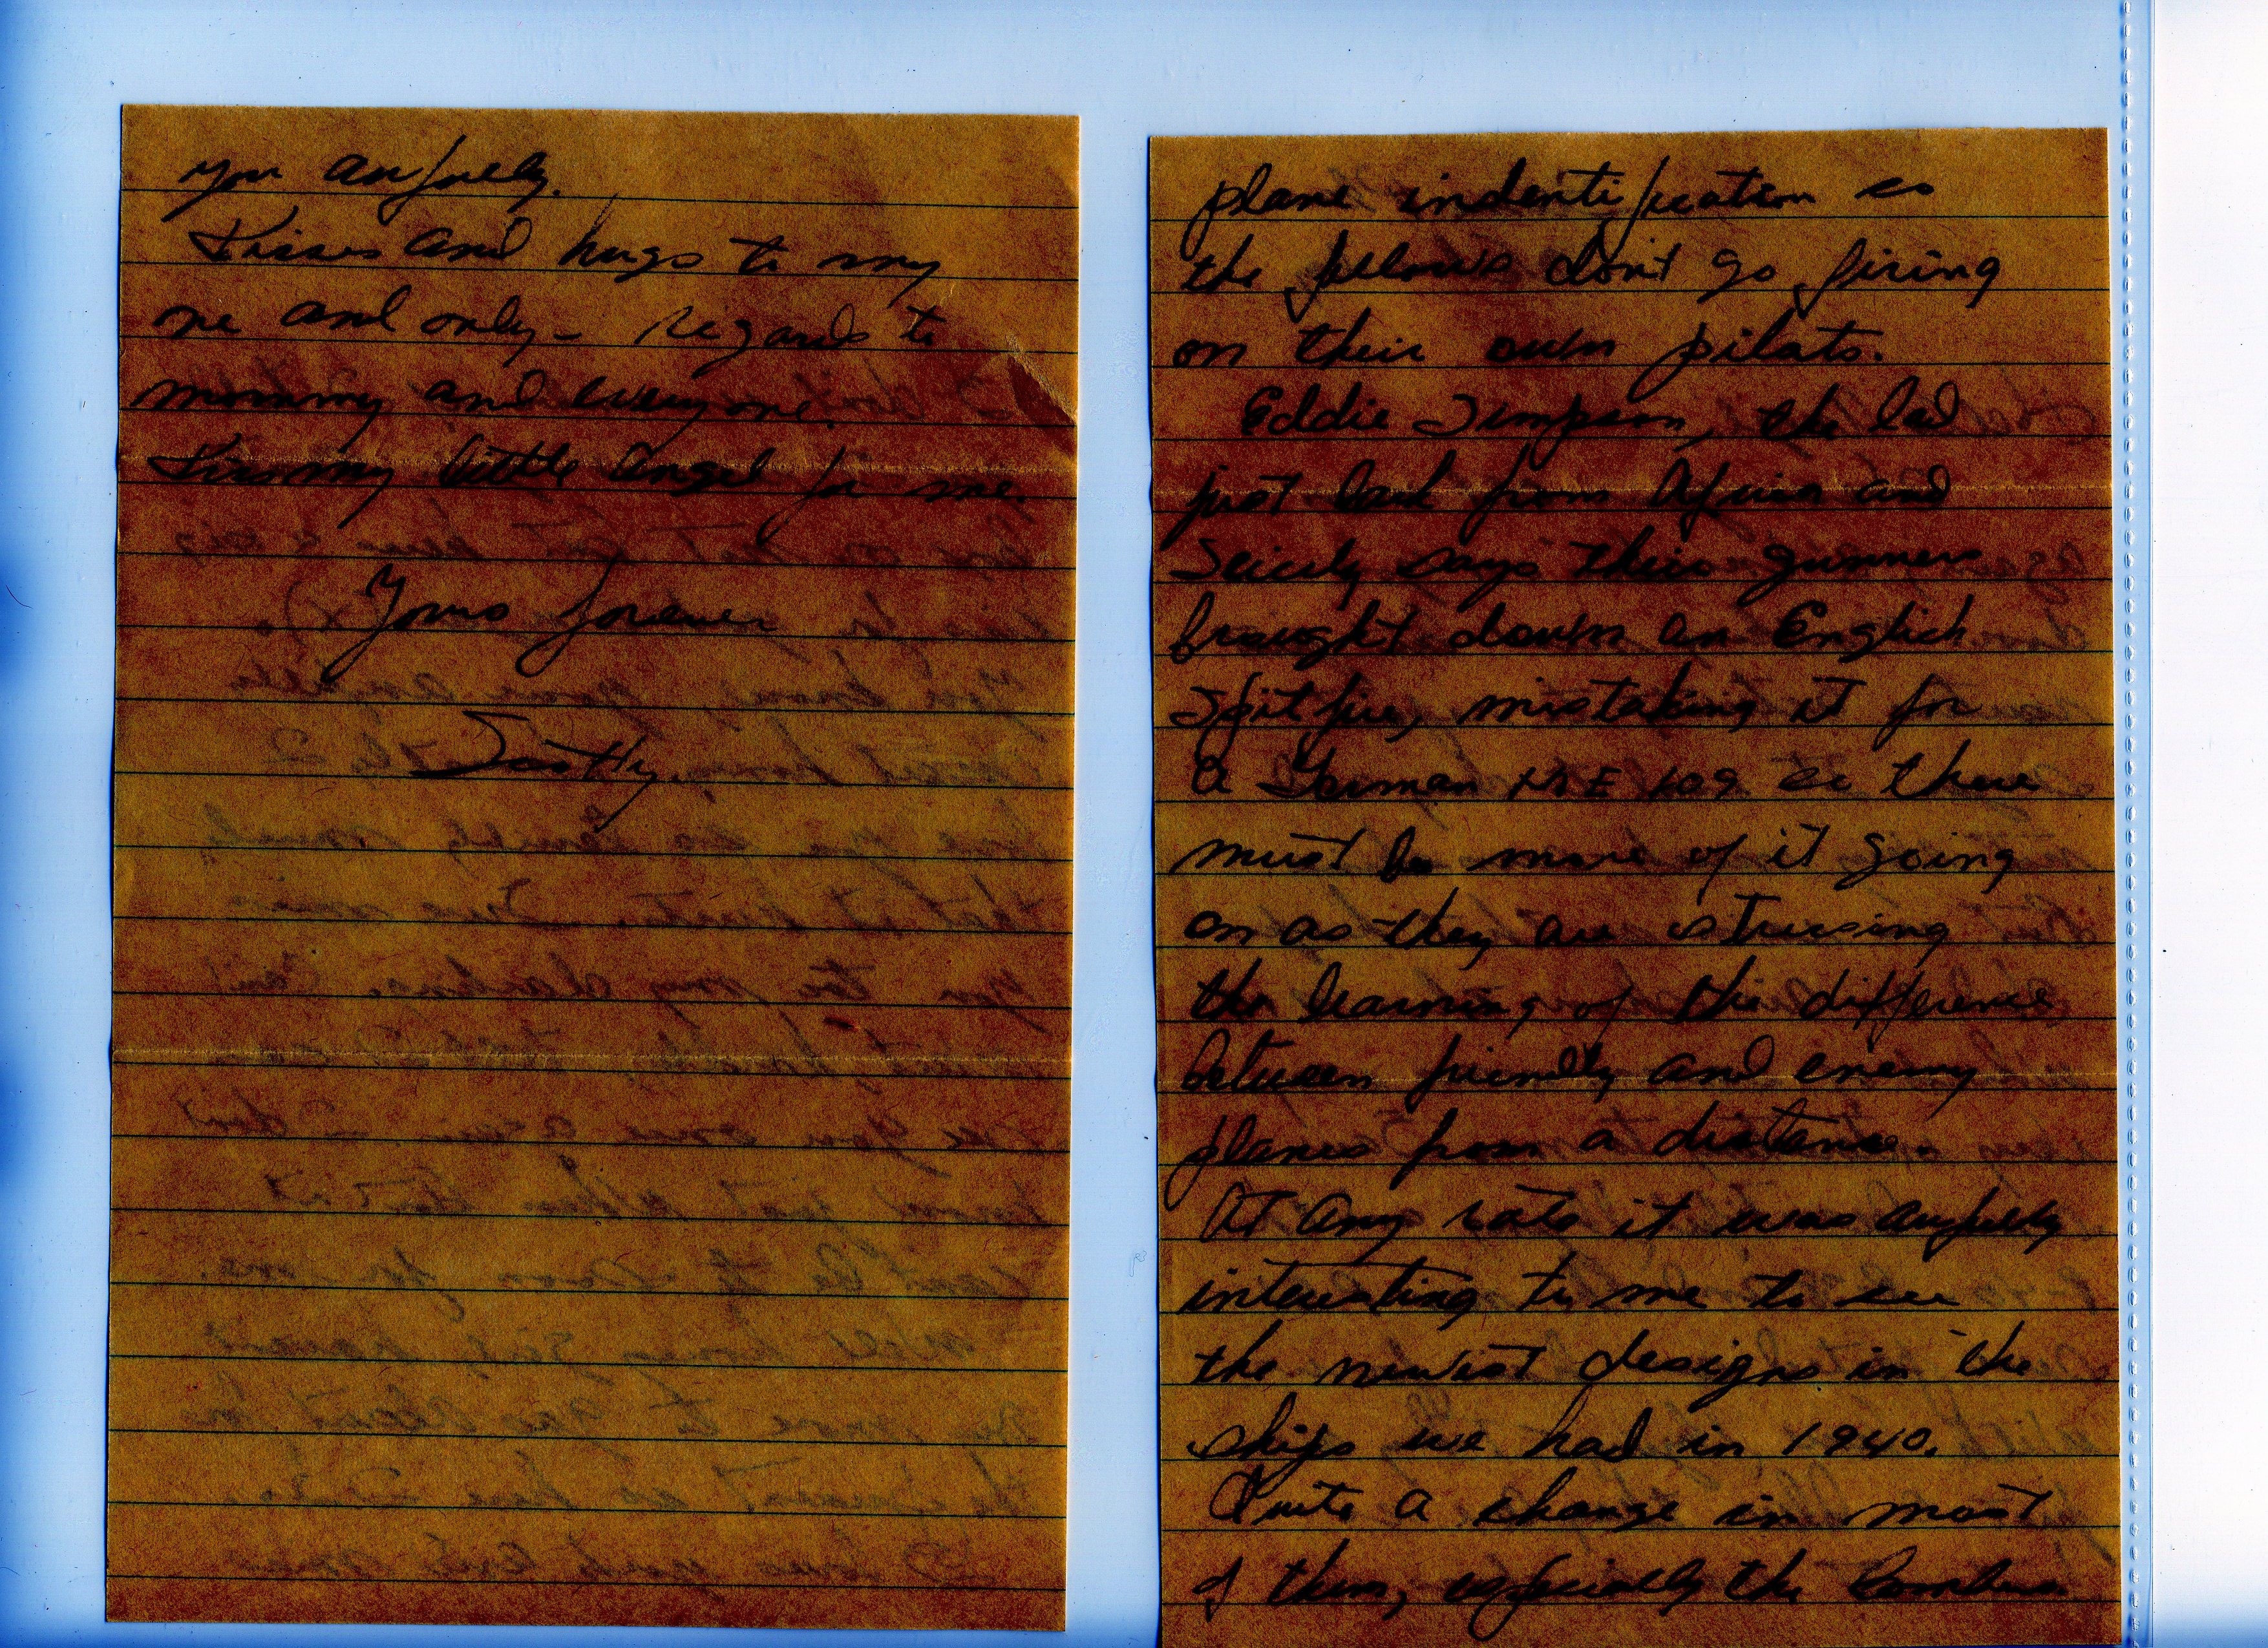 you awfully.
Kisses and hugs to my
one and only - Regards to
mommy and everyone.
Kiss my little angel for me.
Yours forever
Scotty.
plane indentification so
the fellows don't go firing
on their own pilots.
Eddie Simpson, the lad
just back from Africa and
Scicily says their gunners
brought down an English
Spitfire, mistaking it for
a German ME 109 so there
must be more of it going
on as they are stressing
the learning of the difference
between friendly and enemy
planes from a distance.
At any rate it was awfully
interesting to me to see
the newest designs in the
ships we had in 1940.
Quite a change in most
of them, especially the bombers